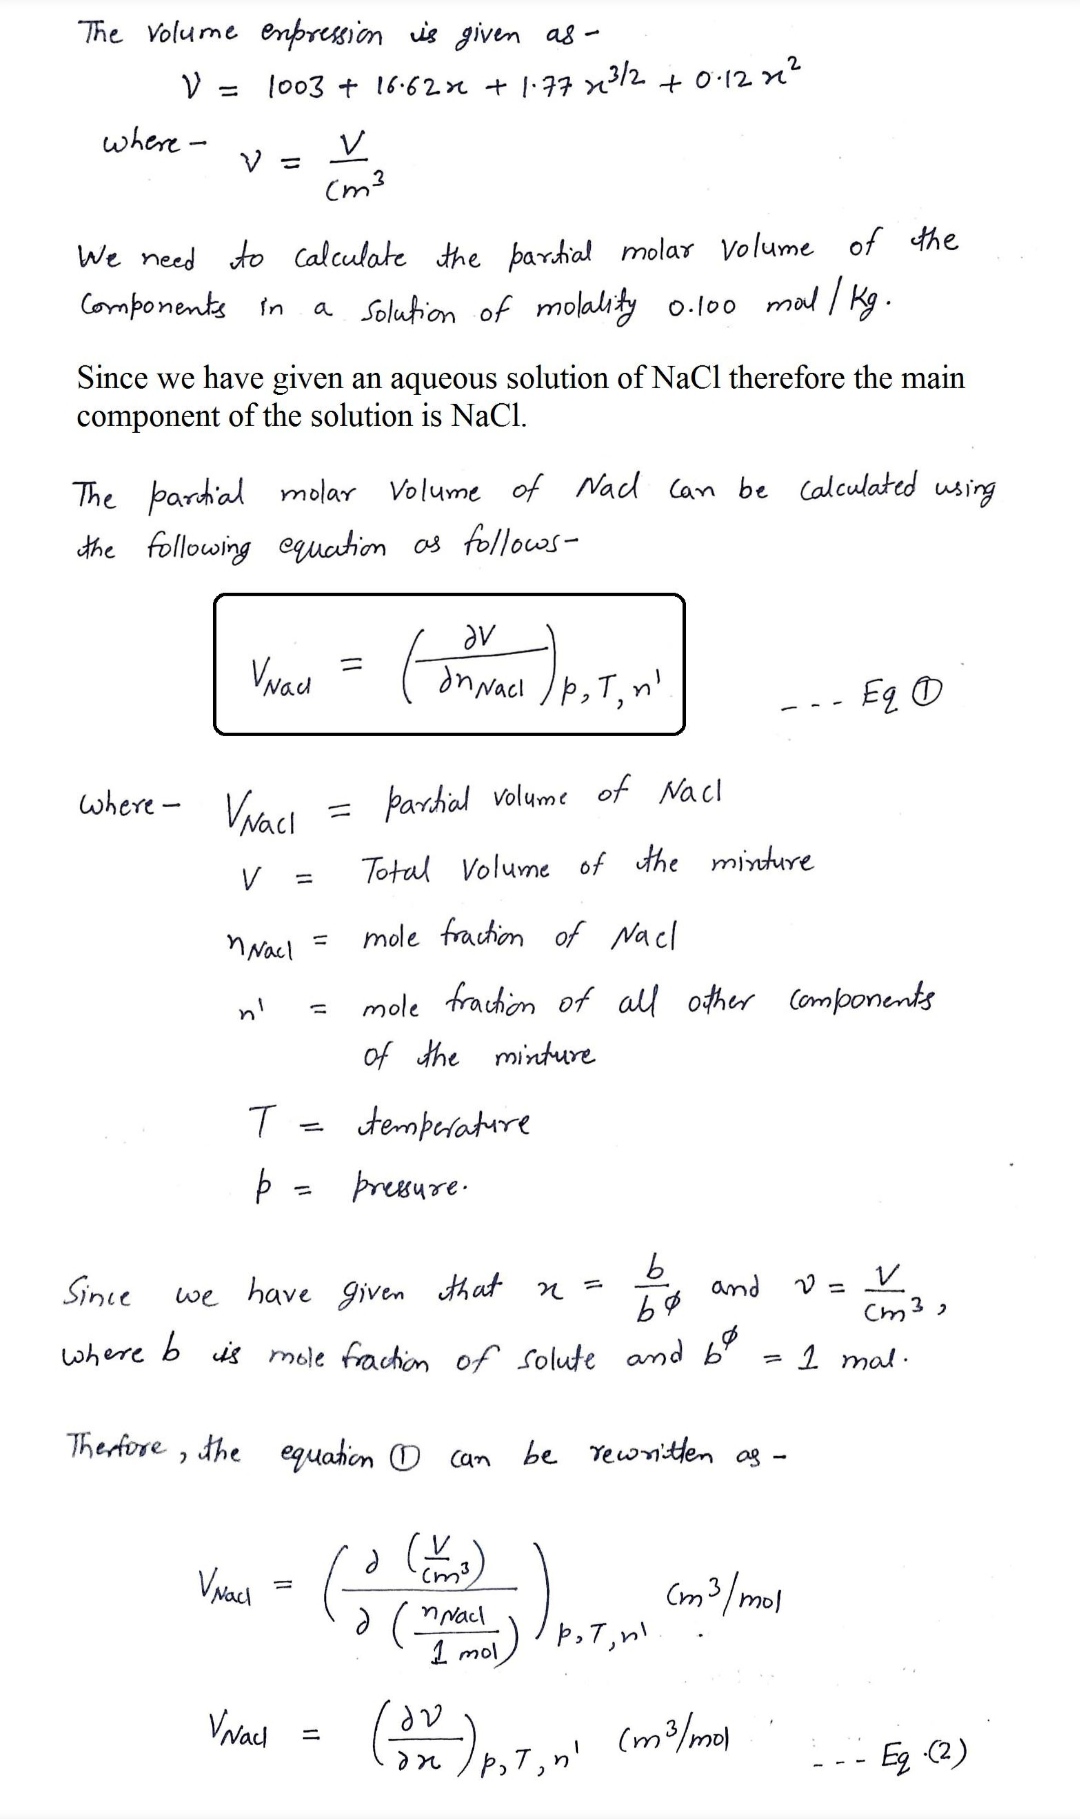 The Volume enpression is given as -
ν = 1003 + 16.62x + 1.77 x^3/2 + 0.12 x^2
where - ν = V / cm^3
We need to calculate the partial molar volume of the
Components in a solution of molality 0.100 mol / kg.
Since we have given an aqueous solution of NaCl therefore the main
component of the solution is NaCl.
The partial molar Volume of Nacl can be calculated using
the following equation as follows-
V_Nacl = (∂V / ∂n_Nacl)_p, T, n' --- Eq ①
where - V_Nacl = partial volume of Nacl
V = Total Volume of the minture
n_Nacl = mole fraction of Nacl
n' = mole fraction of all other components
of the minture
T = temperature
p = pressure.
Since we have given that x = b / b^ø and ν = V / cm^3 ,
where b is mole fraction of solute and b^ø = 1 mal.
Therfore , the equation ① can be rewritten as -
V_Nacl = (∂ (V / cm^3) / ∂ (n_Nacl / 1 mol))_p, T, n' cm^3/mol
V_Nacl = (∂ν / ∂x)_p, T, n' cm^3/mol --- Eq.(2)